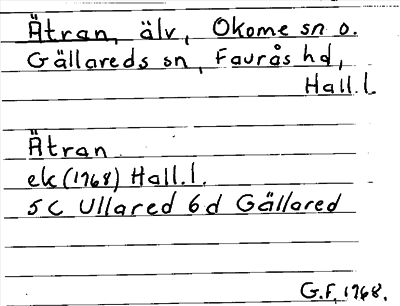 Ätran, älv, Okome sn o.
Gällareds sn, Faurås hd,
Hall.l.
Ätran
ek (1968) Hall.l.
5C Ullared 6d Gällared
G.F. 1968.